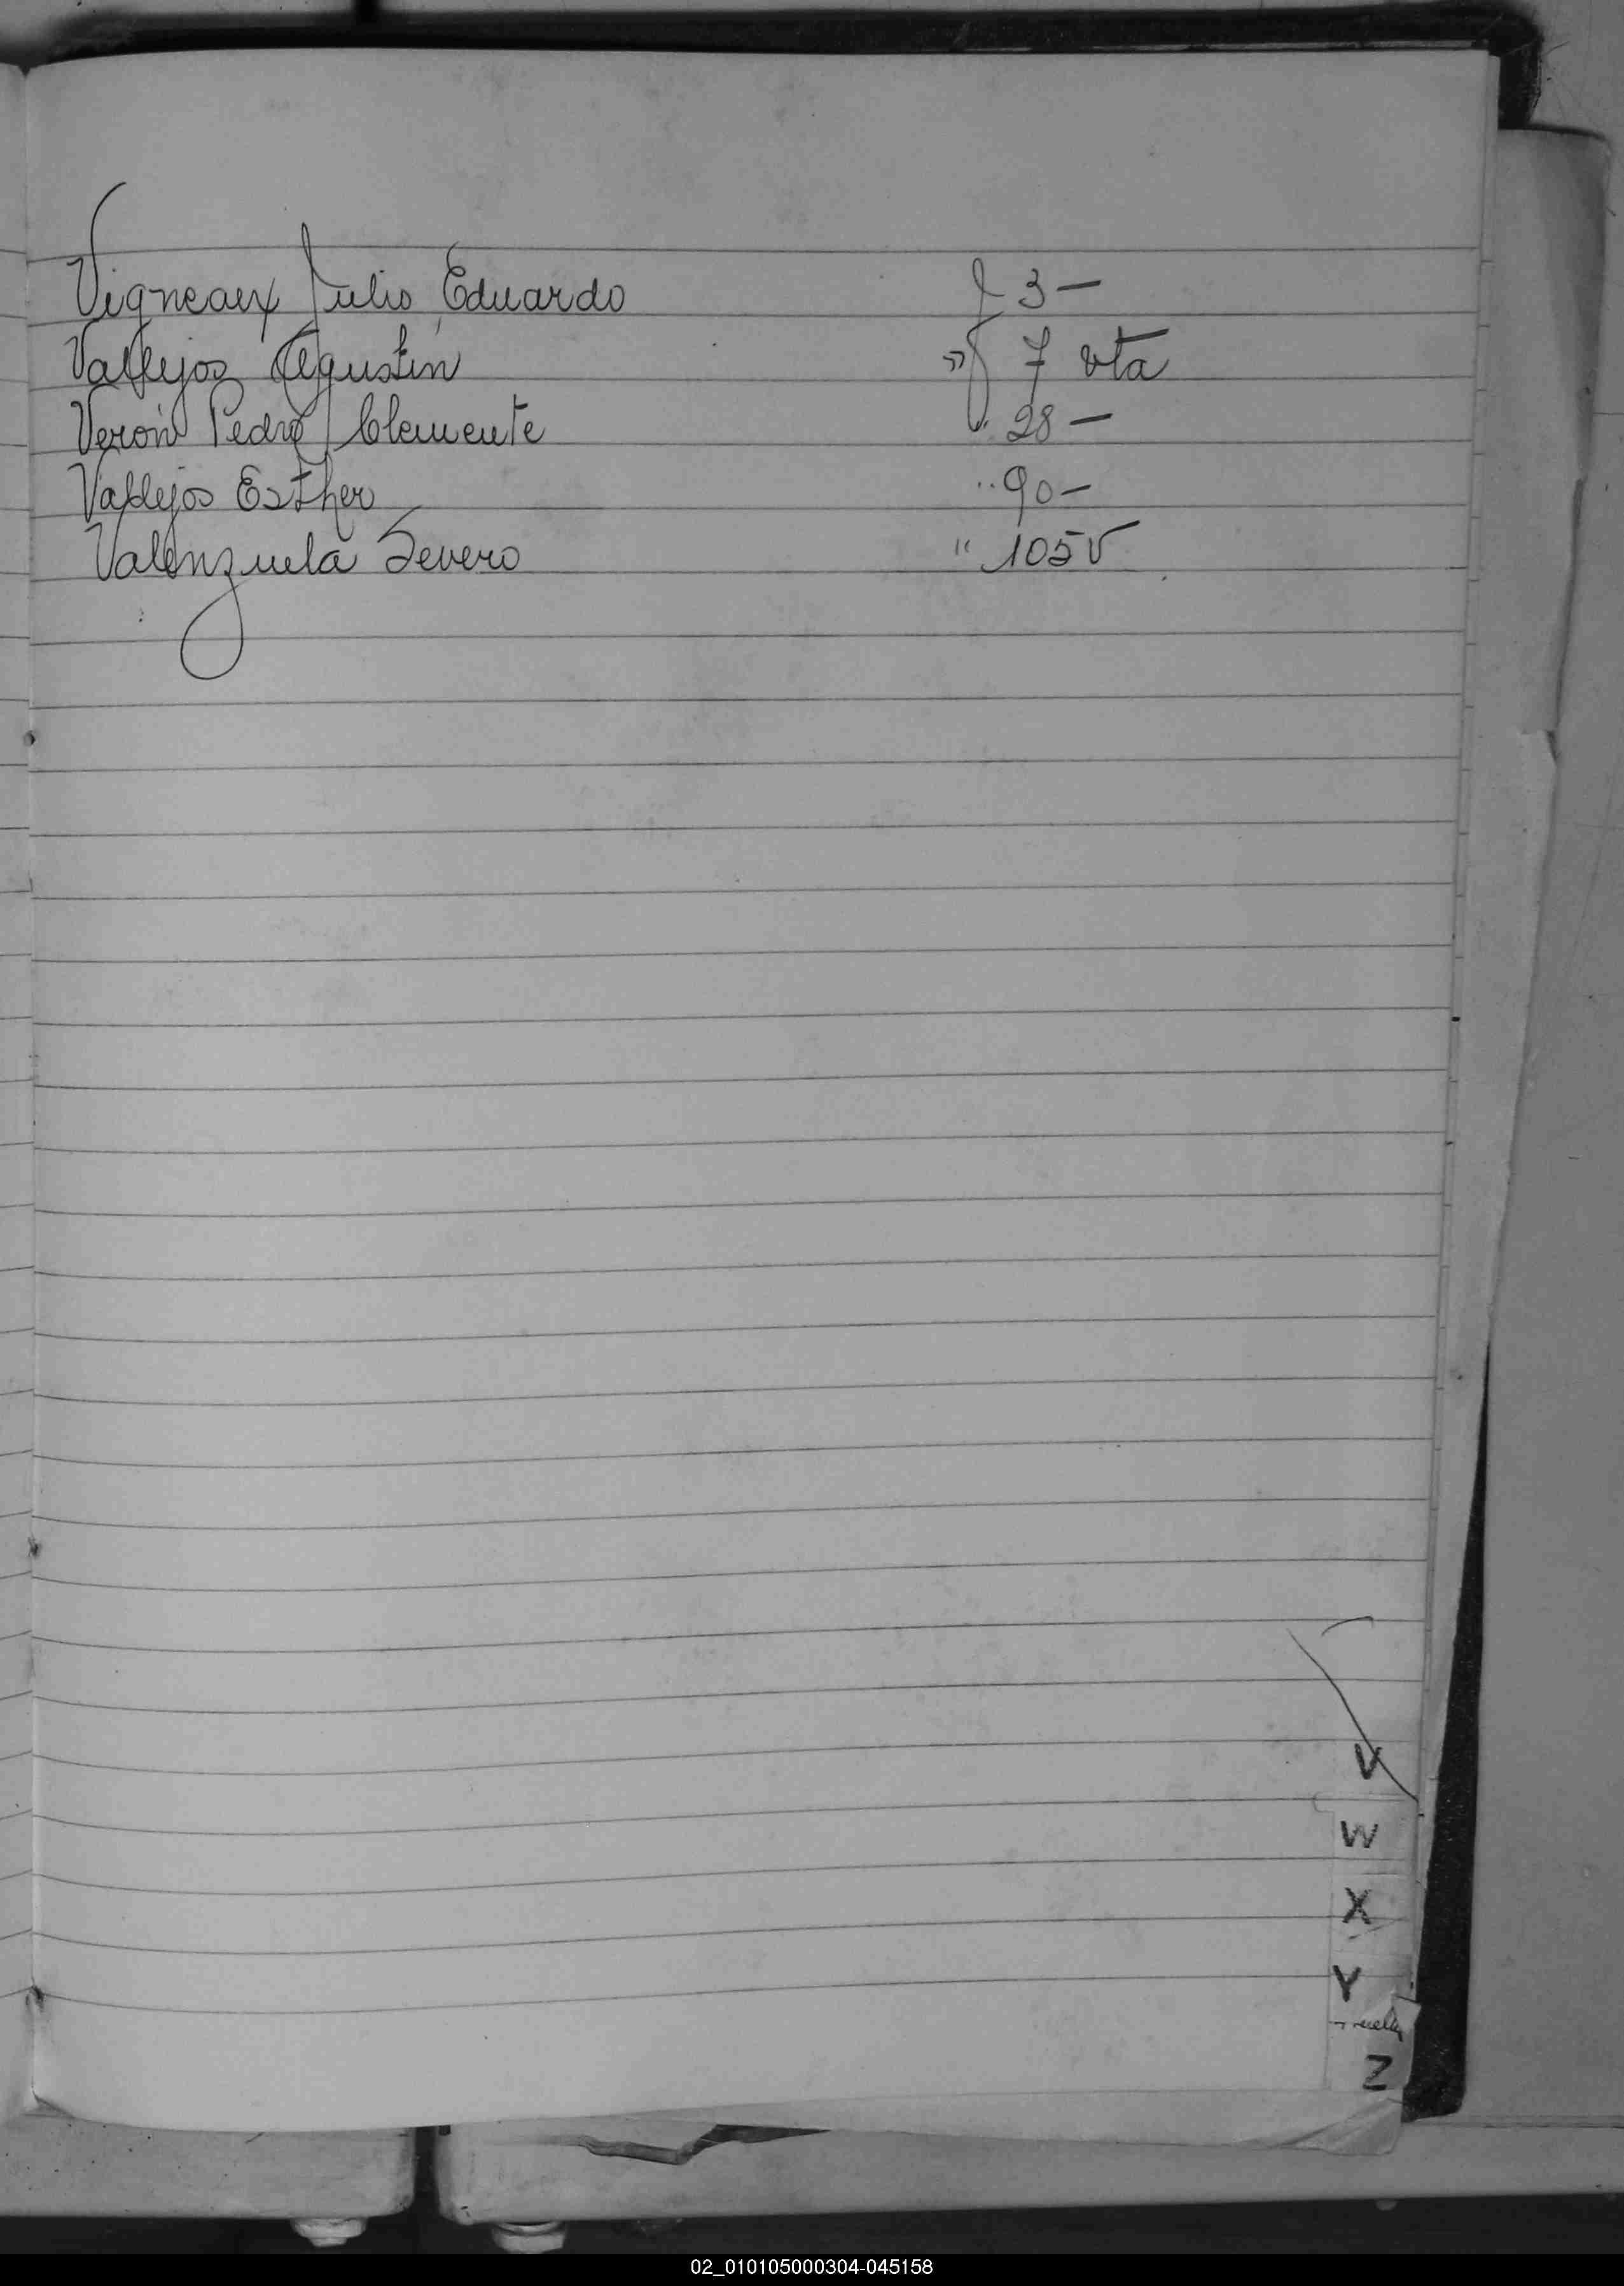 Vigneaux Julio Eduardo f 3 —
Vallejos Agustín » f 7 vta
Verón Pedro Clemente 28 —
Vallejos Esther " 90 —
Valenzuela Severo " 105 V
V
W
X
Y
Z
02_010105000304-045158